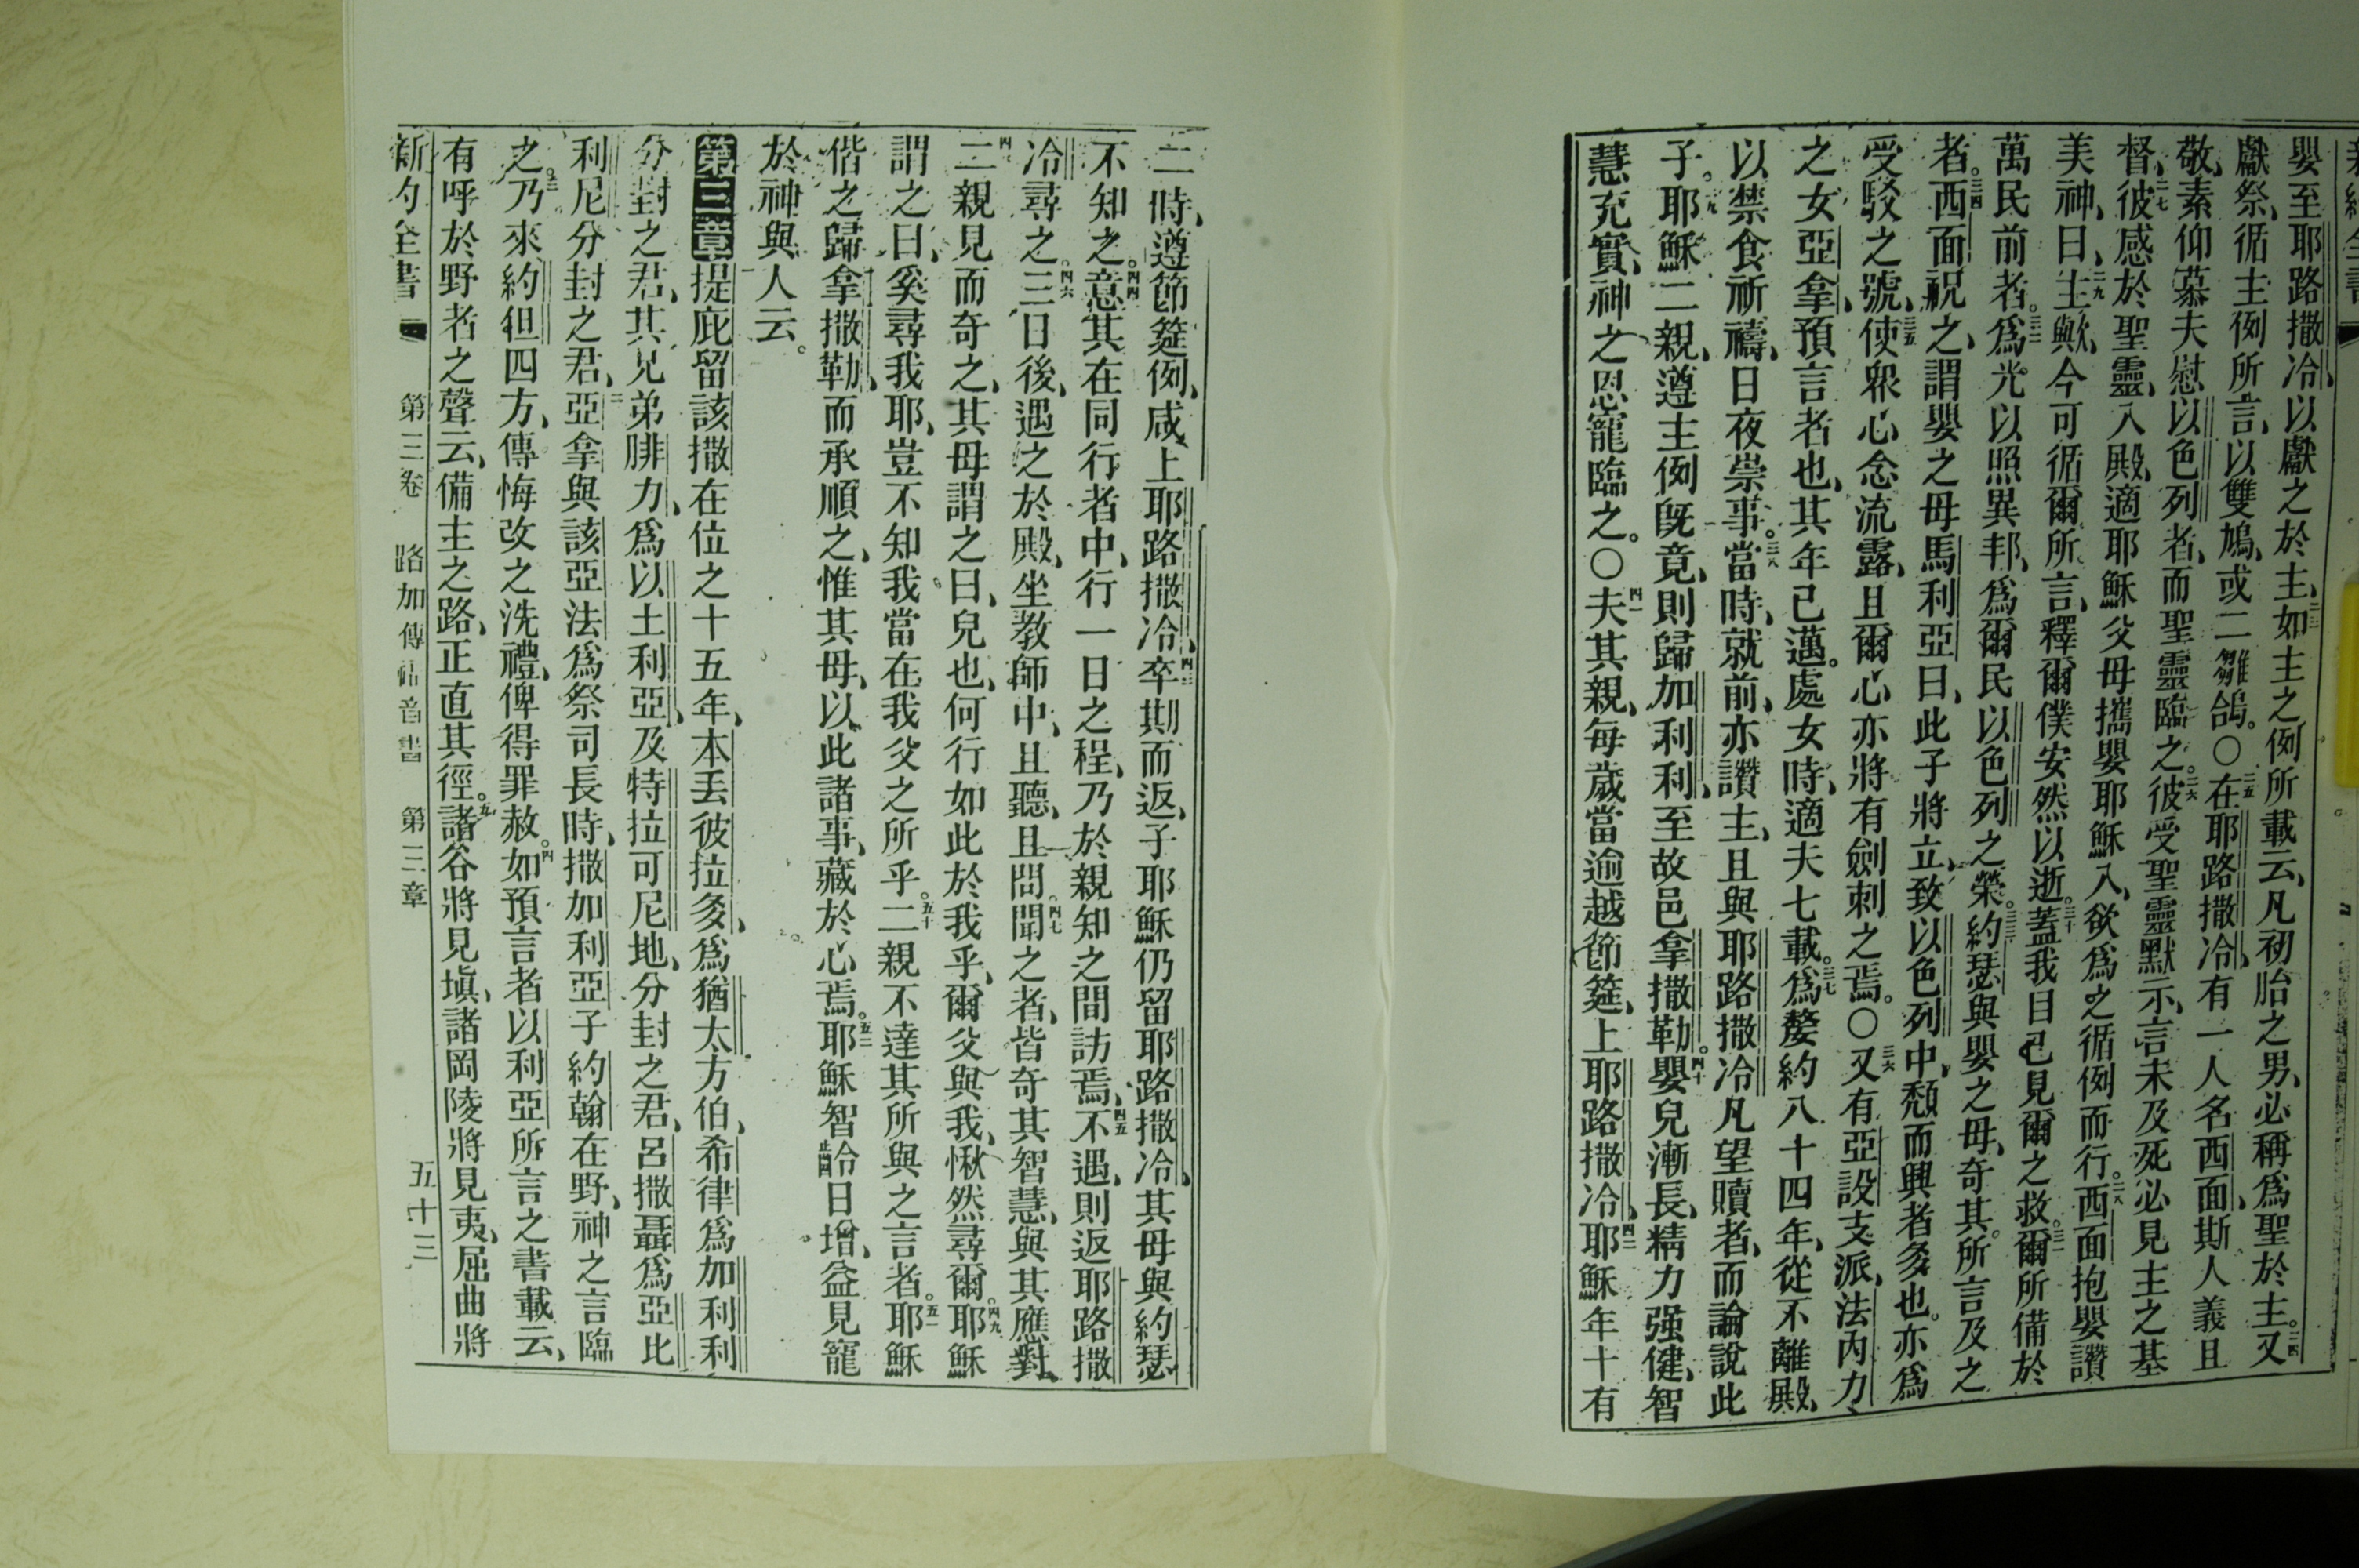 嬰至耶路撒冷、以獻之於主、二三如主之例所載云、凡初胎之男、必稱爲聖於主。二四又
獻祭、循主例所言、以雙鳩、或二雛鴿。〇二五在耶路撒冷、有一人名西面、斯人義且
敬、素仰慕夫慰以色列者、而聖靈臨之。二六彼受聖靈默示、言未及死必見主之基
督、二七彼感於聖靈、入殿、適耶穌父母攜嬰耶穌入、欲爲之循例而行。二八西面抱嬰讚
美神、曰、二九主歟、今可循爾所言、釋爾僕安然以逝。三十蓋我目已見爾之救。三一爾所備於
萬民前者。三二爲光以照異邦、爲爾民以色列之榮。三三約瑟與嬰之母、奇其所言及之
者。三四西面祝之、謂嬰之母馬利亞曰、此子將立、致以色列中、頹而興者多也。亦爲
受駁之號、三五使眾心念流露、且爾心亦將有劍刺之焉。〇三六又有亞設支派、法內力
之女亞拿、預言者也、其年已邁。處女時、適夫七載。三七爲嫠約八十四年、從不離殿、
以禁食祈禱、日夜崇事。三八當時、就前、亦讚主、且與耶路撒冷凡望贖者、而論說此
子。三九耶穌二親、遵主例旣竟、則歸加利利、至故邑拿撒勒。四十嬰兒漸長、精力强健、智
慧充實、神之恩寵臨之。〇四一夫其親、每歲當逾越節筵、上耶路撒冷、四二耶穌年十有
二時、遵節筵例、咸上耶路撒冷、四三卒期而返、子耶穌仍留耶路撒冷、其母與約瑟
不知之。四四意其在同行者中、行一日之程、乃於親知之間訪焉、四五不遇、則返耶路撒
冷尋之。四六三日後、遇之於殿、坐敎師中、且聽、且問。四七聞之者、皆奇其智慧、與其應對、
四八二親見而奇之、其母謂之曰、兒也、何行如此於我乎、爾父與我、愀然尋爾。四九耶穌
謂之曰、奚尋我耶、豈不知我當在我父之所乎。五十二親不達其所與之言者。五一耶穌
偕之歸拿撒勒、而承順之、惟其母、以此諸事、藏於心焉。五二耶穌智齡日增、益見寵
於神與人云。
第三章 提庇留該撒在位之十五年、本丟彼拉多、爲猶太方伯、希律爲加利利
分封之君、其兄弟腓力、爲以土利亞、及特拉可尼地、分封之君、呂撒聶爲亞比
利尼分封之君、二亞拿與該亞法爲祭司長時、撒加利亞子約翰在野、神之言臨
之。三乃來約但四方、傳悔改之洗禮、俾得罪赦。四如預言者以利亞所言之書載云、
有呼於野者之聲云、備主之路、正直其徑。五諸谷將見塡、諸岡陵將見夷、屈曲將
新約全書 第三卷 路加傳福音書 第三章 五十三